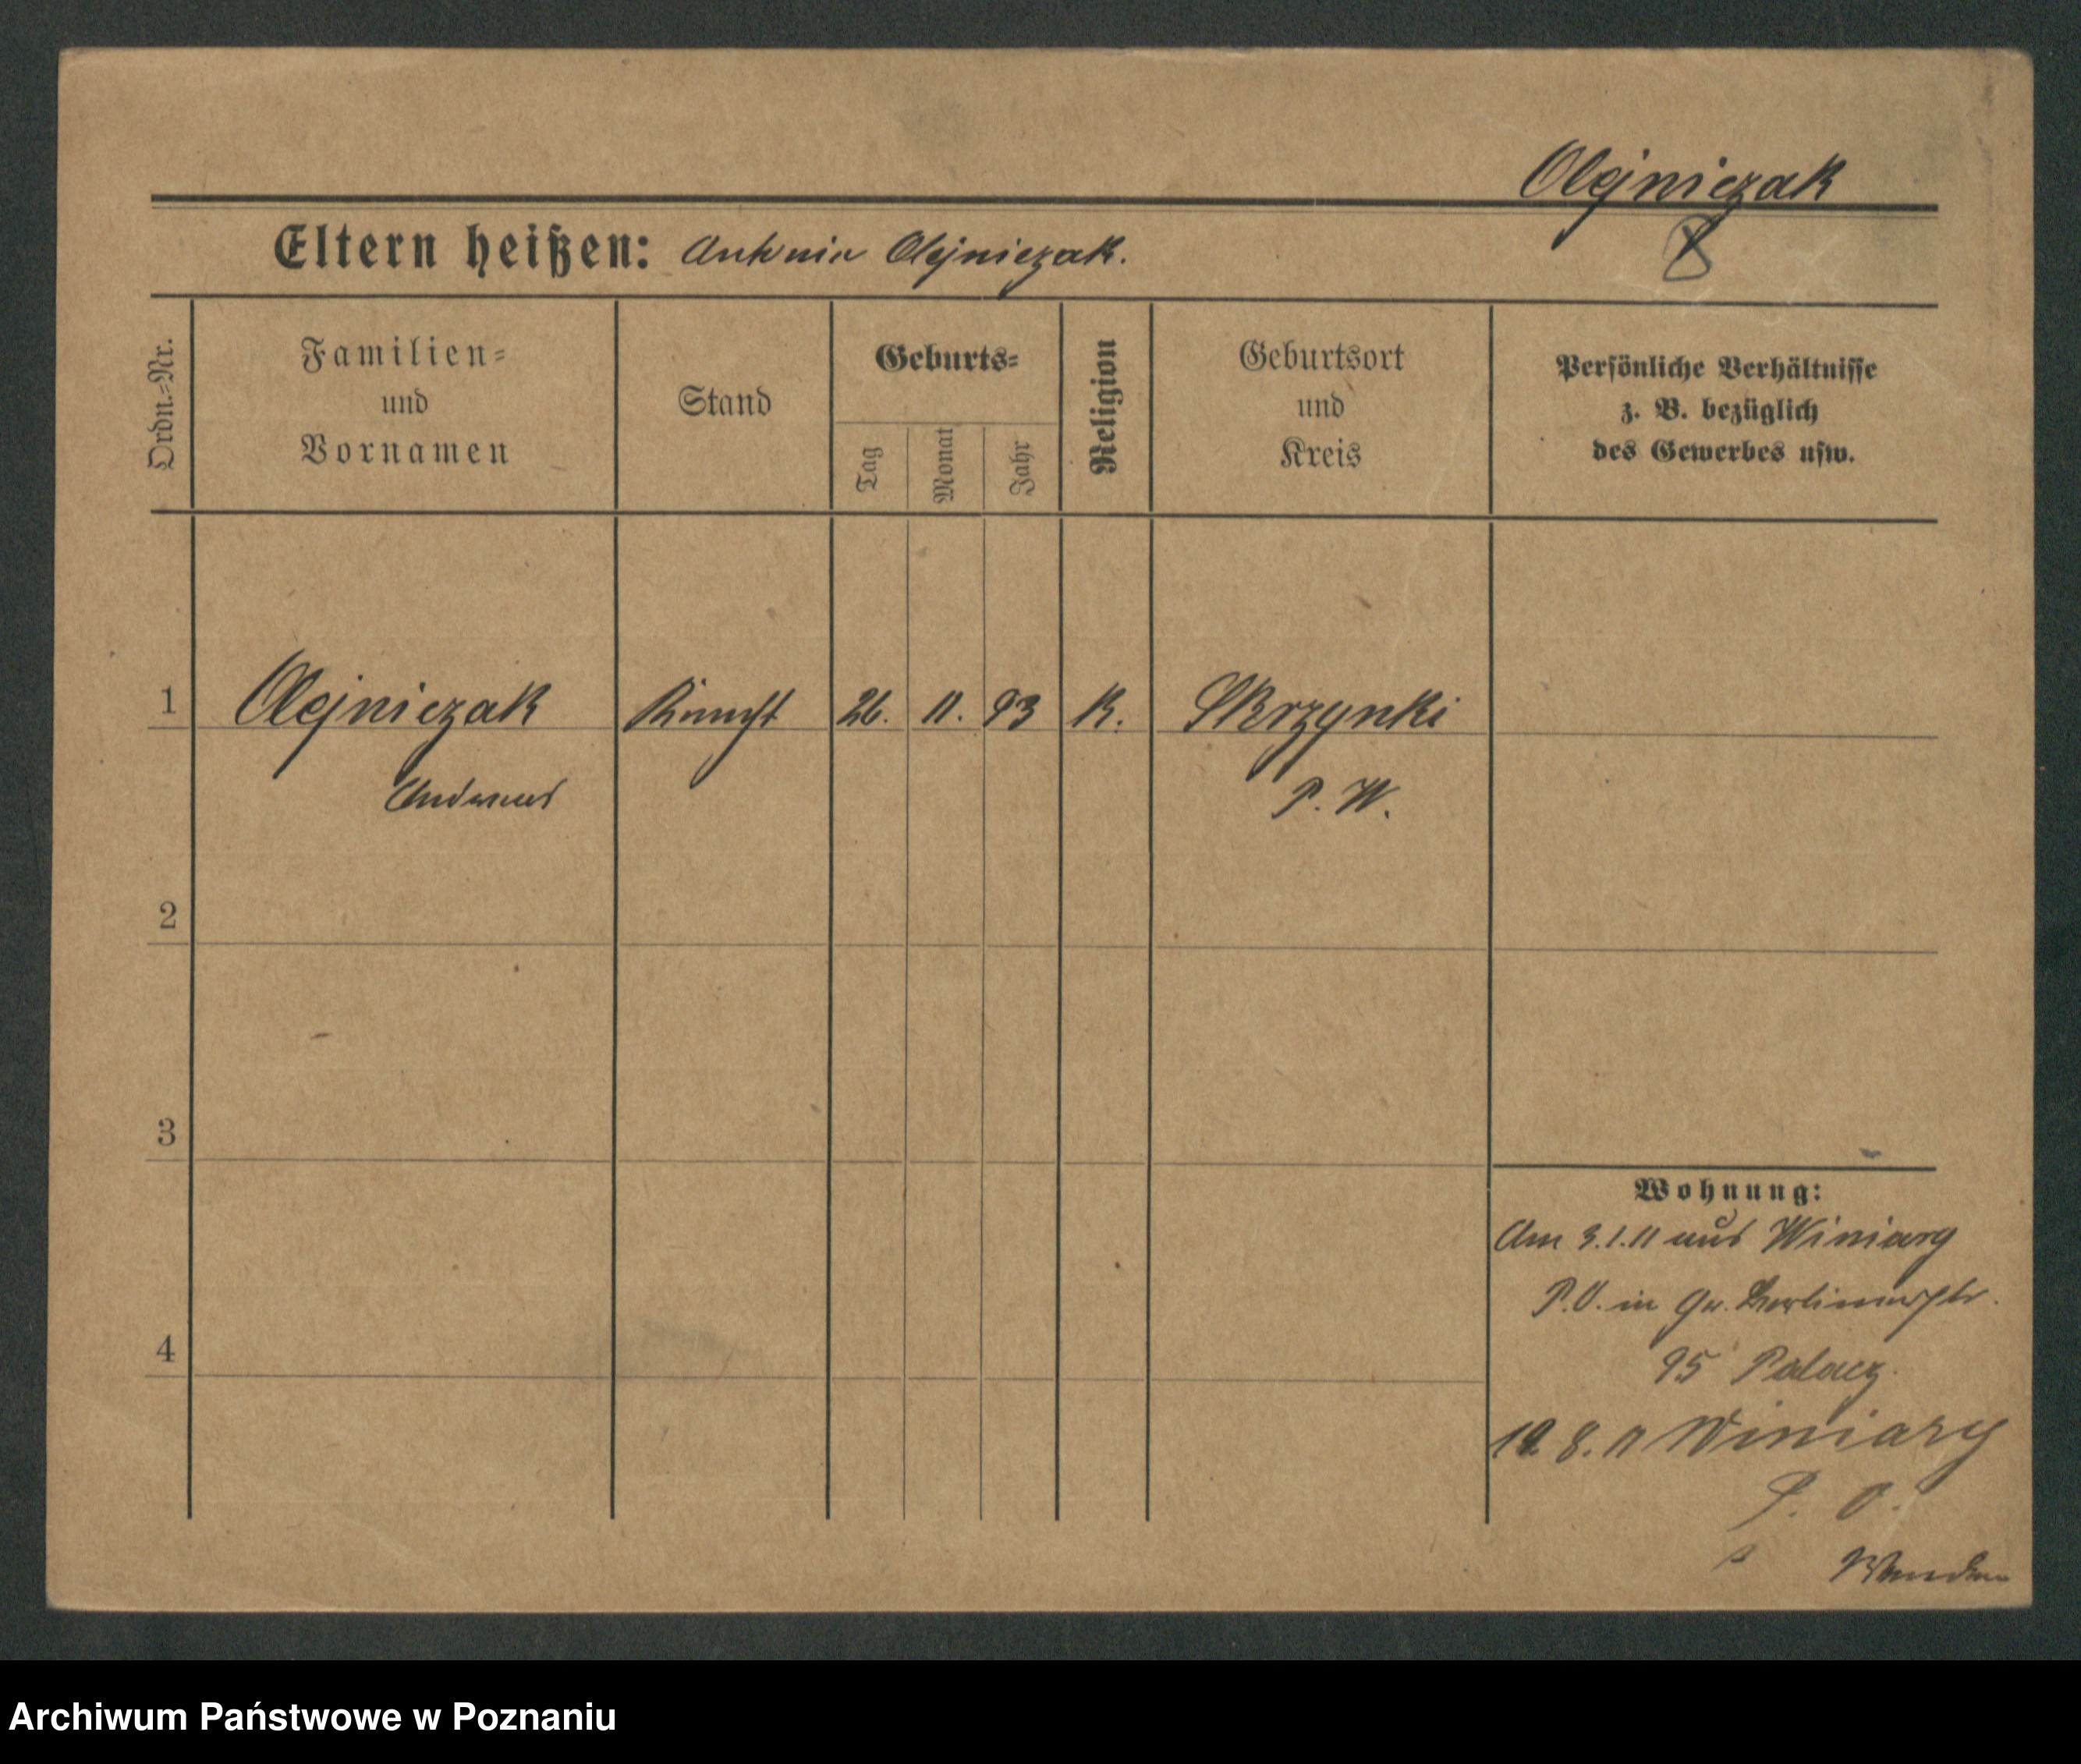 Olejniczak
Eltern heißen: Antonin Olejniczak.
Ordn.=Nr.
Familien=
und
Vornamen
Stand
Geburts=
Tag
Monat
Jahr
Religion
Geburtsort
und
Kreis
Persönliche Verhältnisse
z. B. bezüglich
des Gewerbes usw.
1 Olejniczak 26. 11. 93 K. Skrzynki
Andreas P. W.
2
3
4
Wohnung:
Am 3.1.11 aus Winiary
P.O. in Gr. Berlinerstr.
95 Palacz.
8. 11 Winiary
P. O.
Archiwum Państwowe w Poznaniu